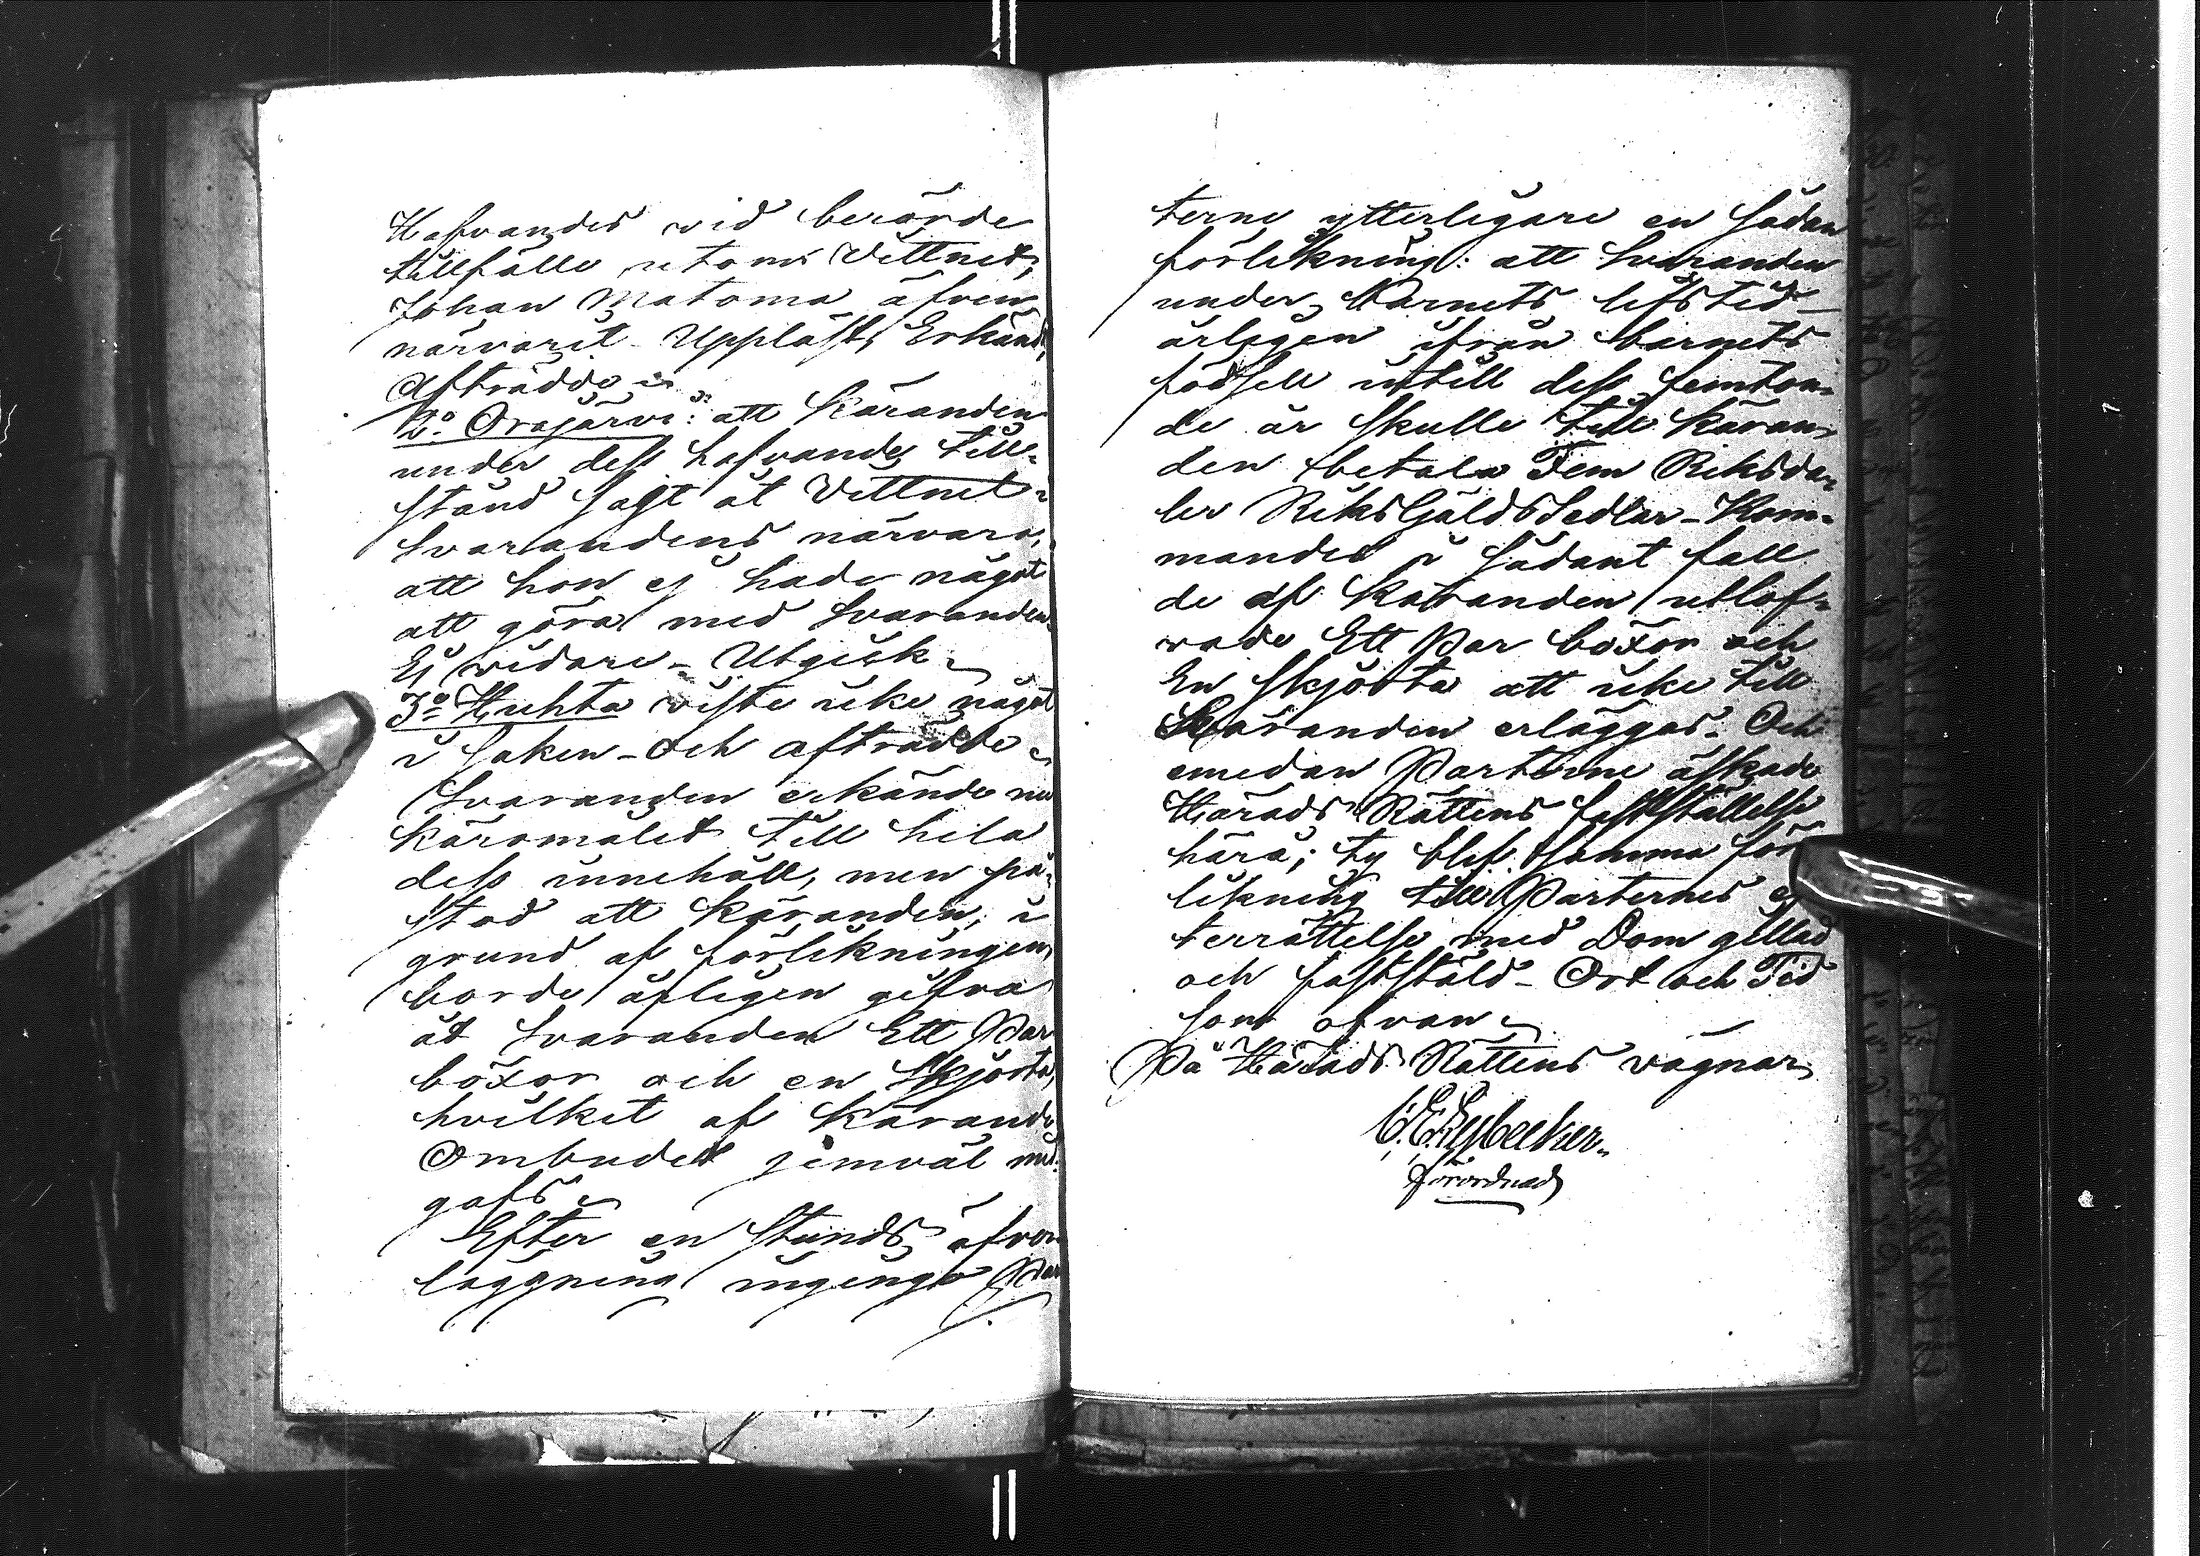 Hafvandes vid berörde
tillfälle utom Vittnet,
Johan Matoma äfven
närvarit. Uppläst, Erkändt,
Afträdde
2o Orajärvi: att Käranden
under dess hafvandes till-
stånd sagt åt Vittnet i
Svarandens närvaro,
att hon ej hade något
att göra med Svaranden.
Ej vidare. Utgick.
3o Huhta viste icke något
i saken - och afträdde
Svaranden erkände nu
käromålet till hela
dess innehåll, men på-
stod att Käranden, i
grund af förlikningen,
borde äfligen gifva
åt Svaranden Ett Par
böxor och en Skjorta,
hvilket af Kärande
Ombudet jemväl med-
gafs
Efter en Stunds öfver-
läggning ingingo Par
terne ytterligare en sådan
förlikning: att Svaranden
under Barnets lifstid
årligen ifrån barnets
födsell intill dess femton-
de år skulle till Käran-
den betala Fem Riksda-
ler RiksGäldsSedlar - Kom-
mandes i sådant fall
de af Käranden utlof-
vade Ett Par böxor och
En skjorta att icke till
Käranden erläggas. Och
emedan Parterne äskade
Härads Rättens fastställelse
härå; ty blef samma för-
likning till Parternes ef
terrättelse med Dom gillad
och fastställd - Ort och Tid
som ofvan
På Härads Rättens vägnar
förordnad